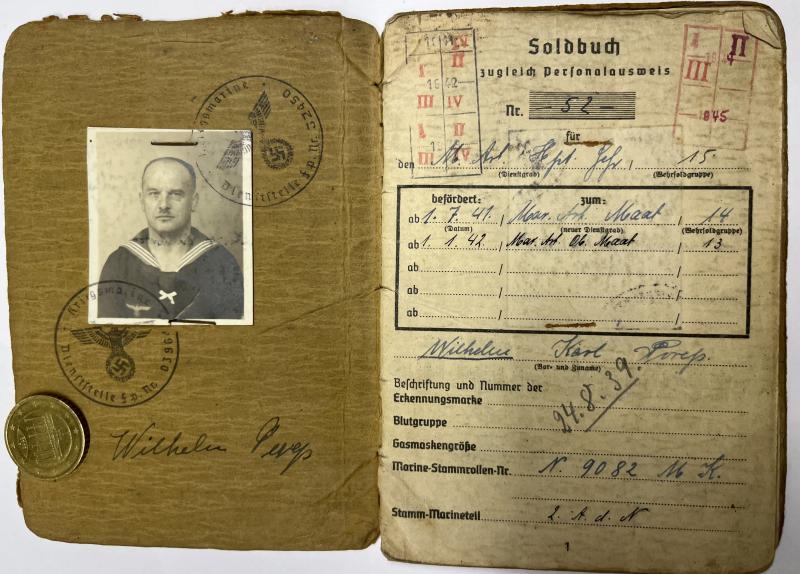 Kriegsmarine
Dienststelle F.p. Nr. 52450
Kriegsmarine
Dienststelle F.p. No
Wilhelm
Soldbuch
zugleich Personalausweis
Nr. - 52 -
für
den M. Art. Hpt. Gefr. / 15
(Dienstgrad) (Wehrsoldgruppe)
befördert: zum:
ab 1. 7. 41. / Mar. Art. Maat / 14
(Datum) (neuer Dienstgrad) (Wehrsoldgruppe)
ab 1. 1. 42. / Mar. Art. Ob. Maat / 13
ab
ab
ab
Wilhelm Karl
(Vor- und Zuname)
Beschriftung und Nummer der
Erkennungsmarke
24.8.39.
Blutgruppe
Gasmaskengröße
Marine-Stammrollen-Nr. N. 9082 M K.
Stamm-Marineteil 2. A. d. N
1
I II
III
1945
IV
I II
1942
III IV
I II
III IV